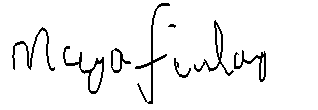 Maya Finlay